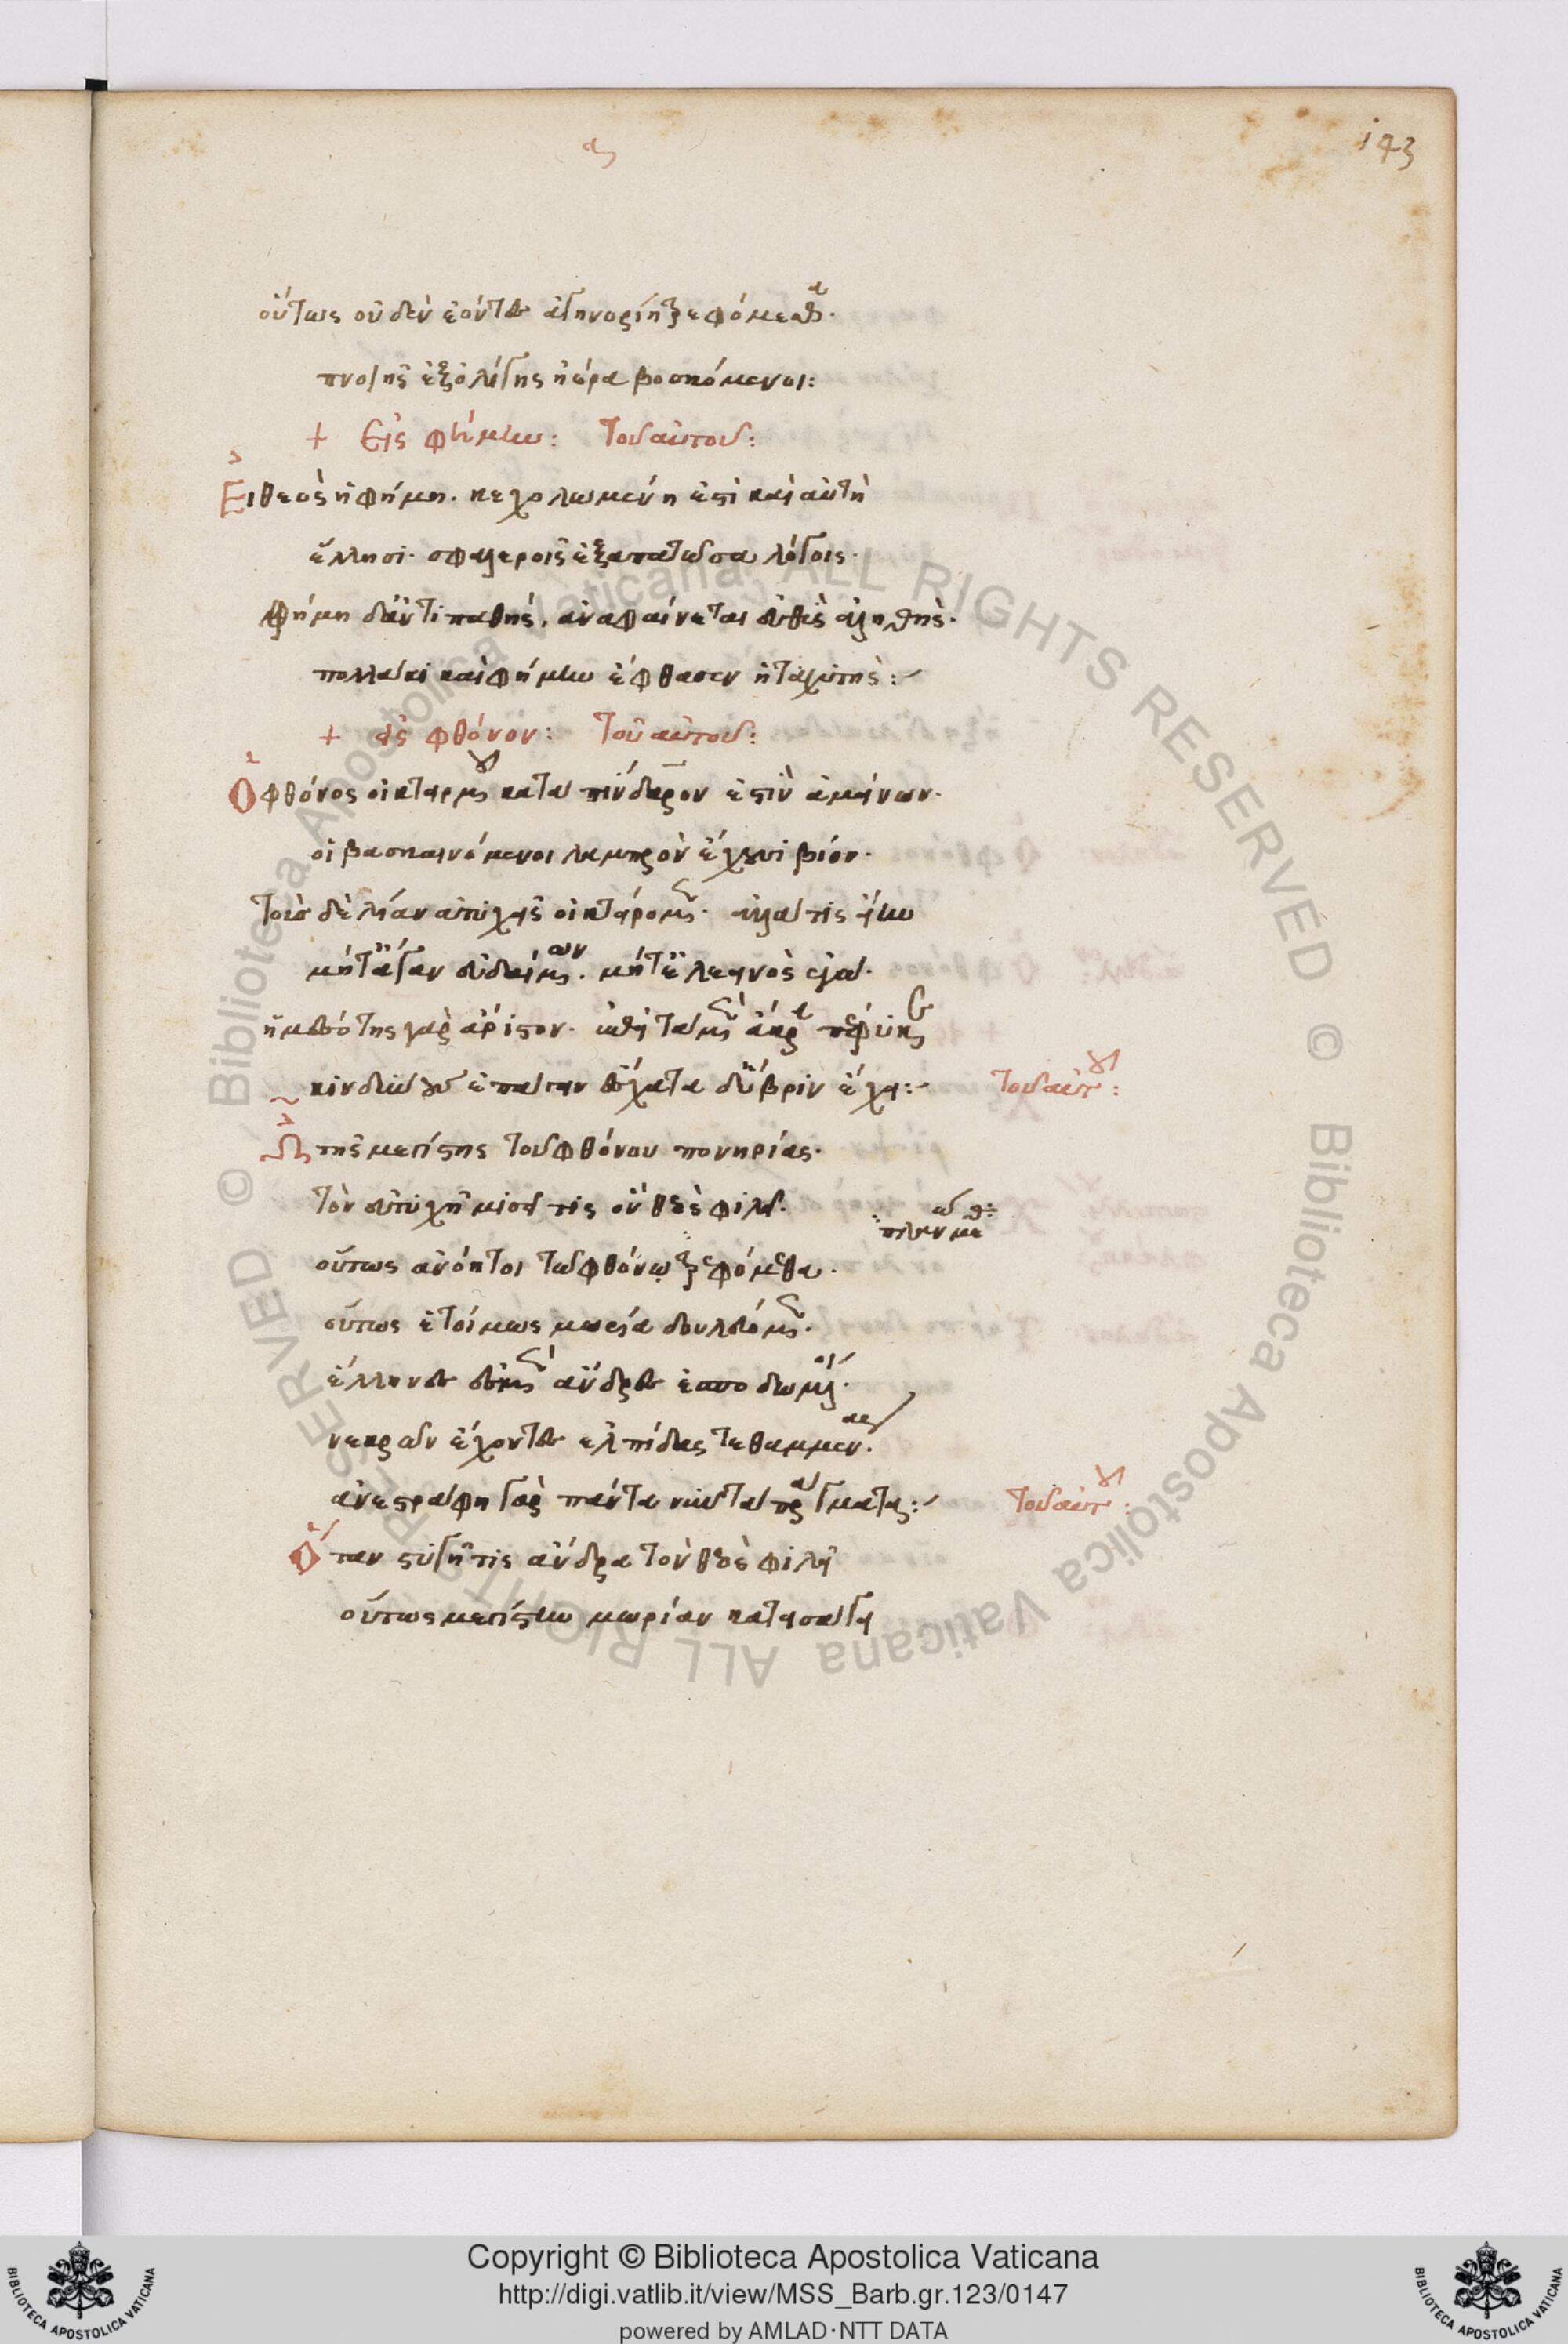 143
οὕτως οὐδὲν ἐόντες ἀγηνορίῃ τρεφόμεσθα
πνοιῆς ἐξ ὀλίγης ἠέρα βοσκόμενοι:
+ Εἰς φήμην: Τοῦ αὐτοῦ:
Εἰ θεὸς ἡ φήμη. κεχολωμένη ἐστὶ καὶ αὐτὴ
ἕλλησι. σφαλεροῖς ἐξαπατῶσα λόγοις.
φήμη δ' ἄν τι παθῇς. ἀναφαίνεται εὐθὺς ἀληθής.
πολλάκι καὶ φήμην ἔφθασεν ἡ ταχυτής:
+ εἰς φθόνον: Τοῦ αὐτοῦ:
Ὁ φθόνος οἰκτιρμοῦ κατὰ πίνδαρον ἐστὶν ἀμείνων.
οἱ βασκαινόμενοι λαμπρὸν ἔχουσι βίον.
τοὺς δὲ λίαν ἀτυχεῖς οἰκτείρομεν. ἀλλά τις εἴην
μήτ' ἄγαν εὐδαίμων. μήτ' ἐλεεινὸς ἐγώ.
ἡ μεσότης γὰρ ἄριστον. ἐπεὶ τὰ μὲν ἄκρα πέφυκε
κινδύνους ἐπάγειν ἔσχατα δ' ὕβριν ἔχει: τοῦ αὐτοῦ:
Ὢ τῆς μεγίστης τοῦ φθόνου πονηρίας.
τὸν εὐτυχῆ μισεῖ τις ὃν θεὸς φιλεῖ.
οὕτως ἀνόητοι τῷ φθόνῳ τρεφόμεθα.
οὕτως ἑτοίμως μωρίᾳ δουλεύομεν.
ἕλληνές ἐσμεν ἄνδρες ἐσποδωμένοι.
νεκρῶν ἔχοντες ἐλπίδας τεθαμμένας.
ἀνεστράφη γὰρ πάντα νῦν τὰ πράγματα: τοῦ αὐτοῦ:
Ὅταν στυγῇ τις ἄνδρα τὸν θεὸς φιλεῖ
οὗτος μεγίστην μωρίαν κατεισάγει
Copyright © Biblioteca Apostolica Vaticana
http://digi.vatlib.it/view/MSS_Barb.gr.123/0147
powered by AMLAD·NTT DATA